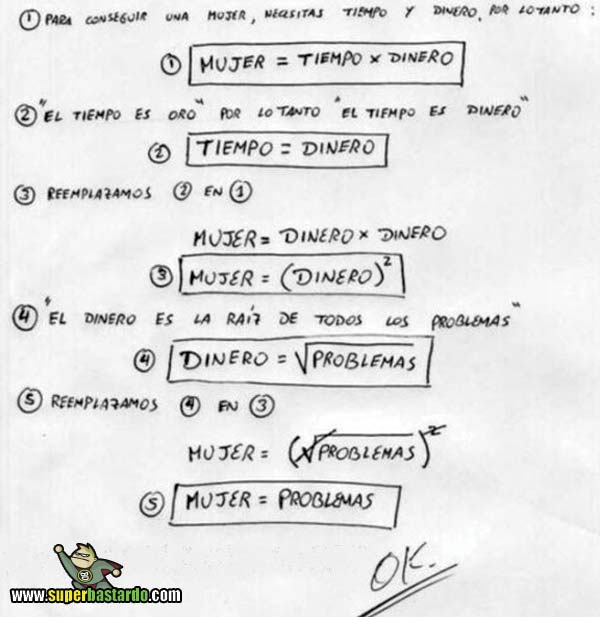 ① PARA CONSEGUIR UNA MUJER, NECESITAS TIEMPO Y DINERO, POR LO TANTO:
① MUJER = TIEMPO x DINERO
② "EL TIEMPO ES ORO" POR LO TANTO "EL TIEMPO ES DINERO"
② TIEMPO = DINERO
③ REEMPLAZAMOS ② EN ①
MUJER = DINERO x DINERO
③ MUJER = (DINERO)²
④ "EL DINERO ES LA RAÍZ DE TODOS LOS PROBLEMAS"
④ DINERO = √PROBLEMAS
⑤ REEMPLAZAMOS ④ EN ③
MUJER = (√PROBLEMAS)²
⑤ MUJER = PROBLEMAS
OK.
www.superbastardo.com